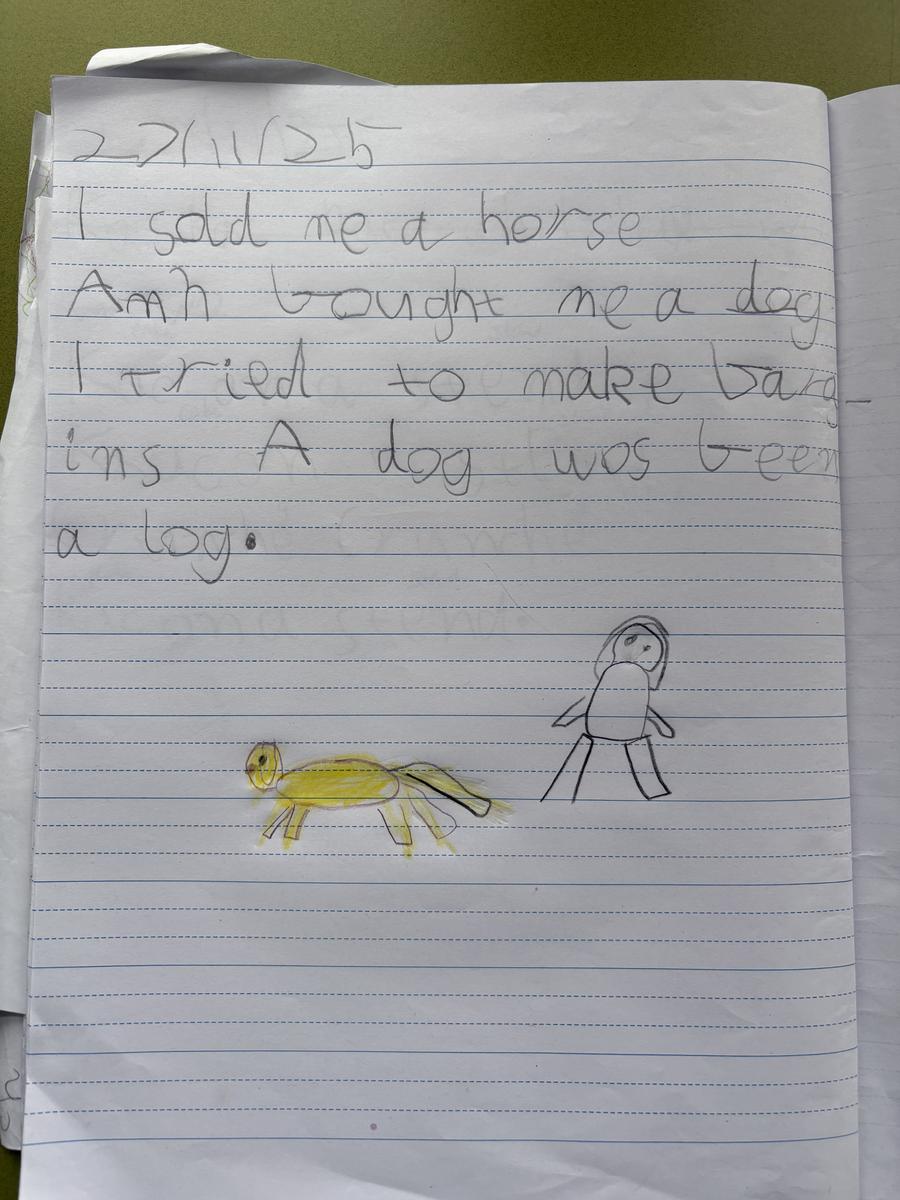 27/11/25
I sold me a horse
Amh bought me a dog
I tried to make barg-
ins A dog wos been
a log.